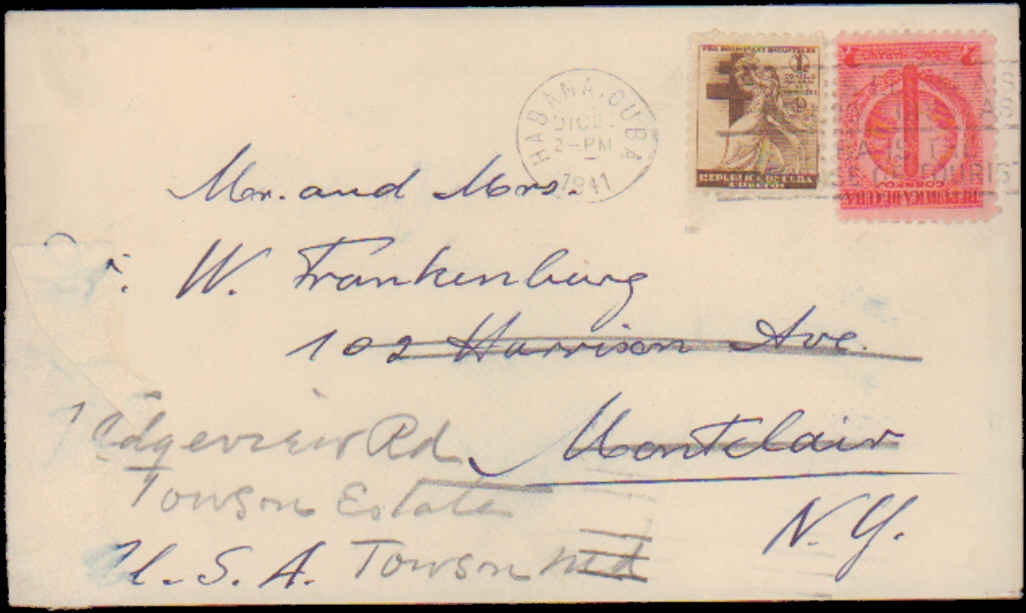 HABANA, CUBA
DIC
2-PM
1941
REPUBLICA DE CUBA
CORREOS
2
REPUBLICA DE CUBA
CORREOS
Mr. and Mrs.
W. Frankenburg
102 Harrison Ave.
Montclair
N. Y.
Edgeview Rd
Towson Estate
U. S. A. Towson Md